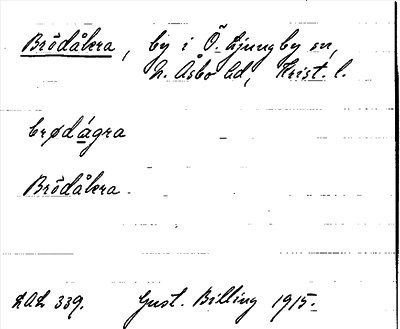 Brödåkra, by i Ö. Ljungby sn,
N. Åsbo hd, Krist. l.
brødágra
Brödåkra.
LAL 339. Gust. Billing 1915.